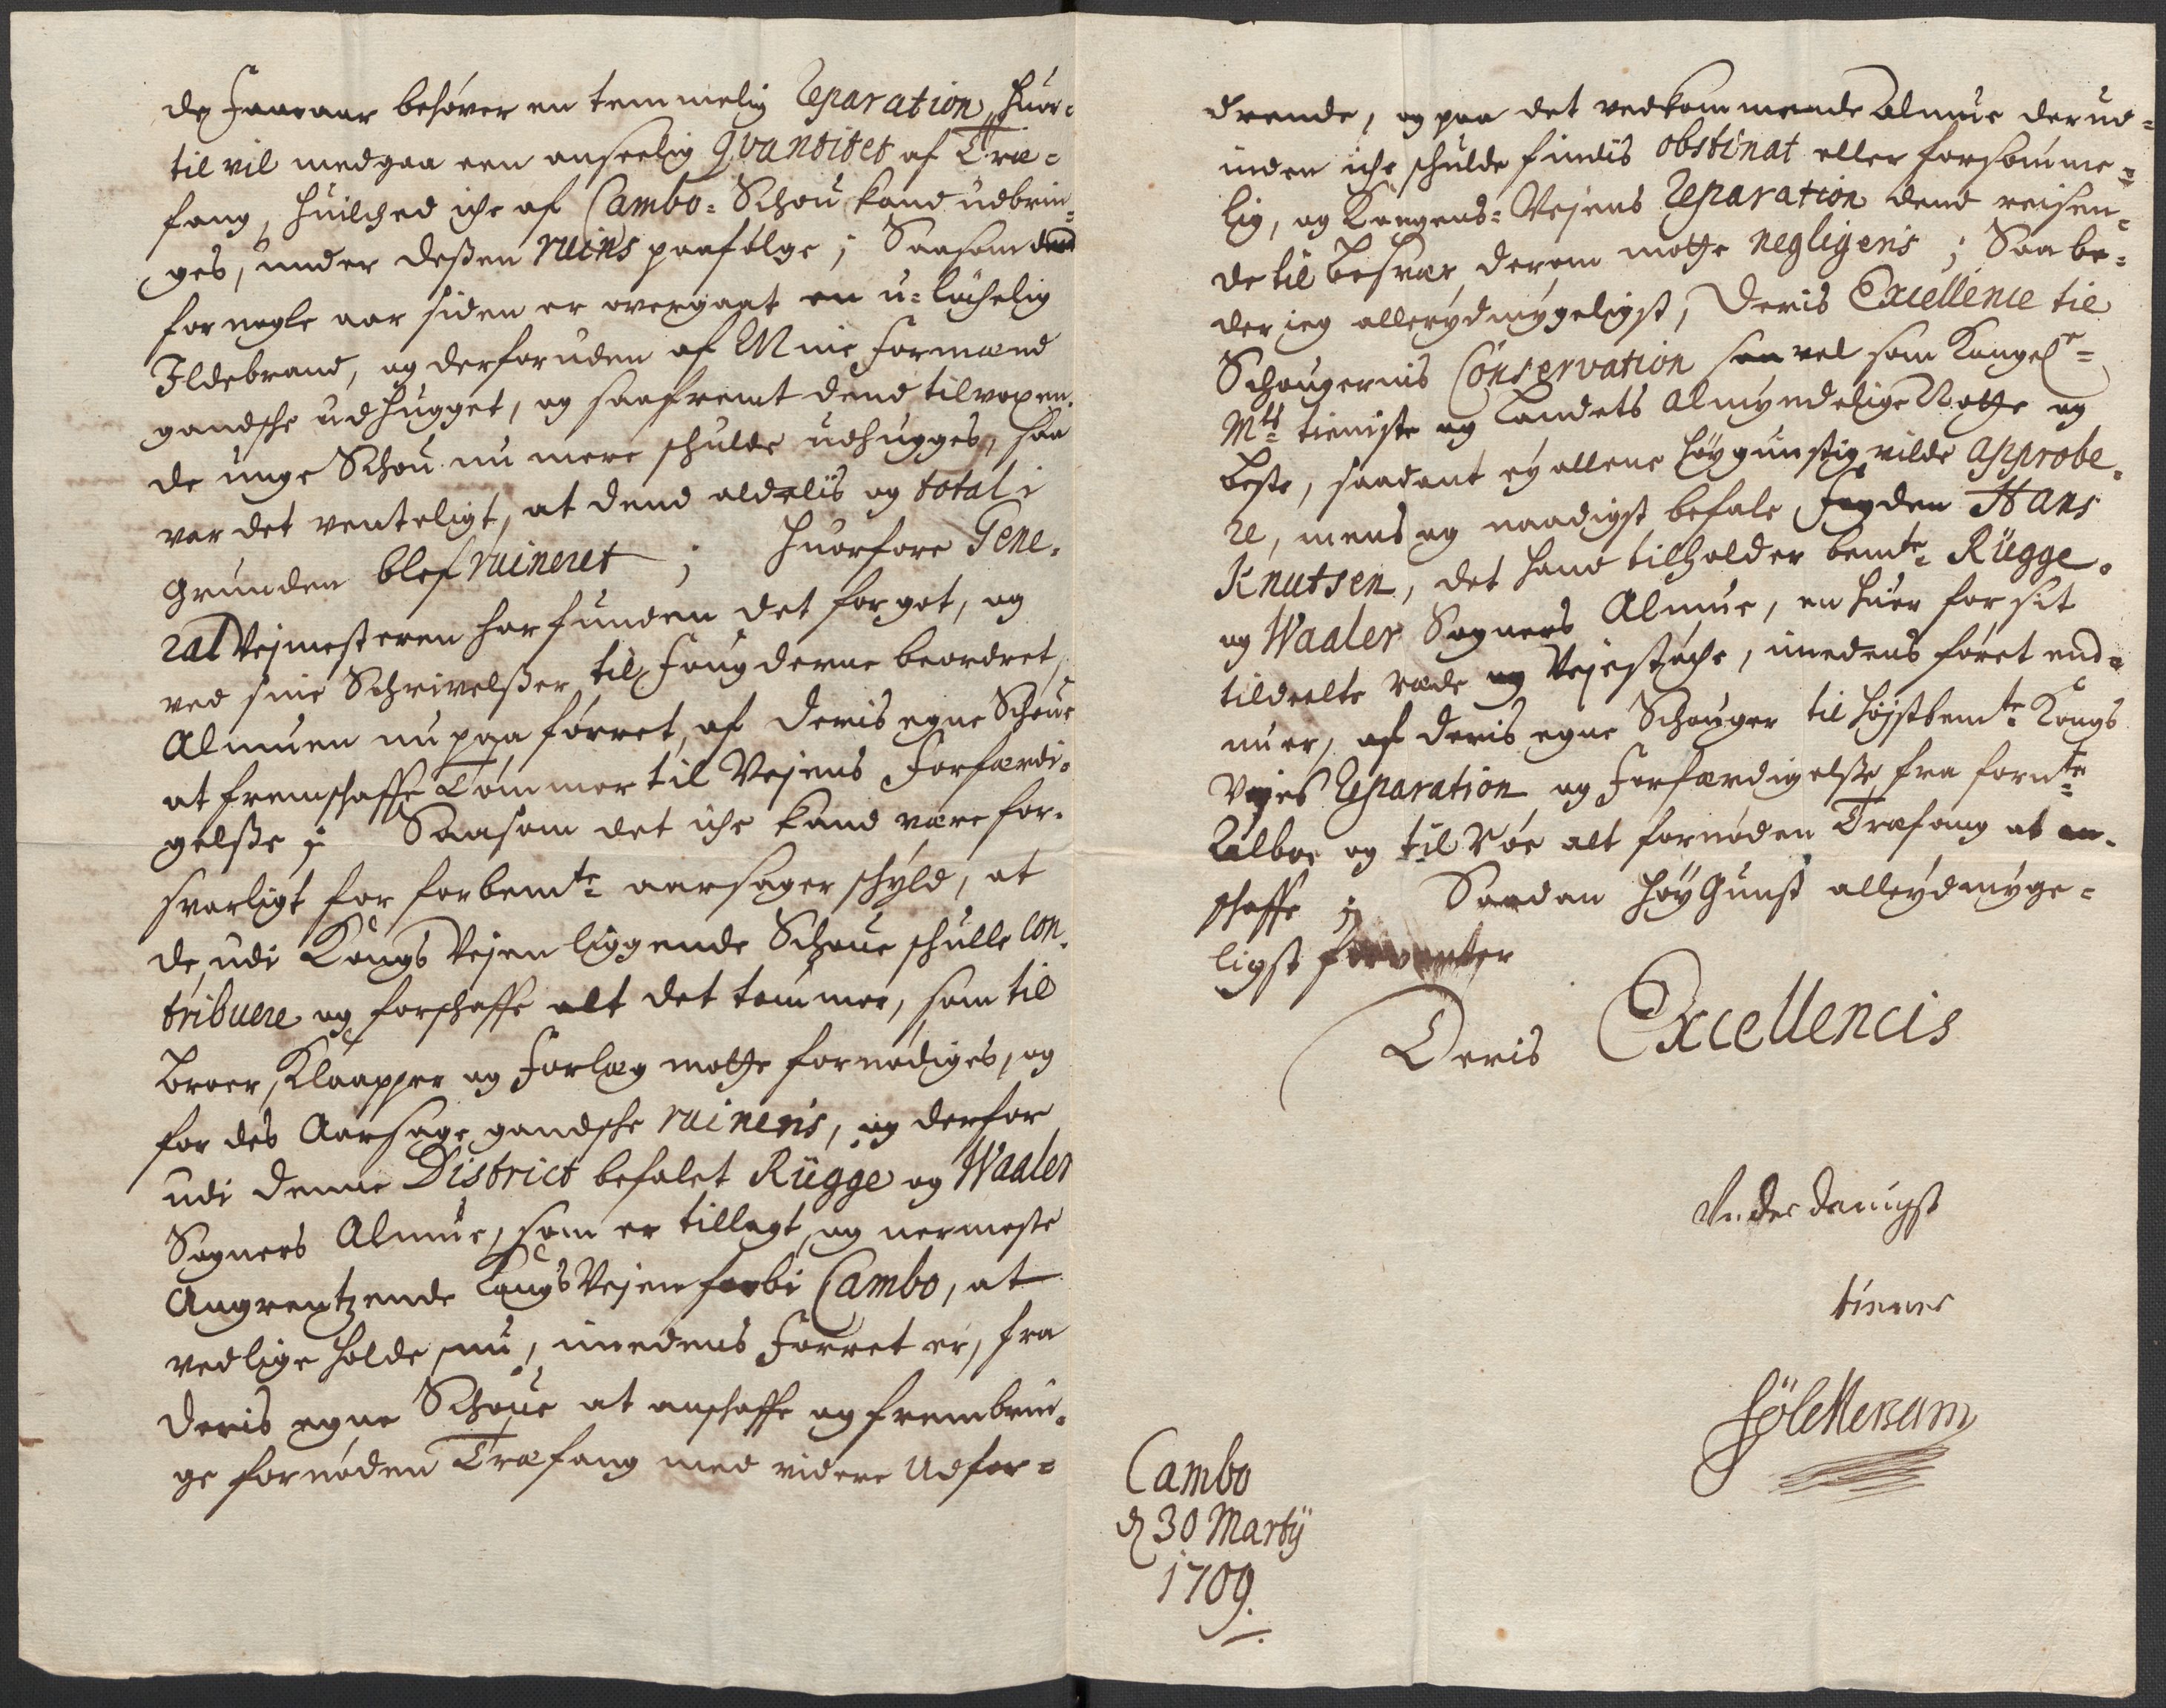 behøver en temmelig Reparation, huor-
til vil medgaa een anseelig qvantitet af Træ-
fang, huilched iche af Cambo-Schou kand udbrin-
ges, under deßen ruins paafølge; Saasom dend
for nogle aar siden er overgaat en u-lychelig
Ildebrand, og derforuden af Mine Formænd
gandsche udhugget, og saafremt dend tilvoxen-
de unge Schou nu mere schulde udhugges, saa
var det venteligt, at dend aldelis og total i
Grunden blef ruineret; Huorfore Gene-
ral Vejmesteren har funden det for got, og
ved sine Schrivelßer til Fougderne beordret,
Almuen nu paa førret, af deris egne Schoue
at fremschaffe Tømmer til Vejens Forfærdi-
gelße; Saasom det iche kand være for-
svarligt for forbemte aarsager schyld, at
de, udi Kongs Vejen liggende Schoue schulle con-
tribuere og forschaffe alt det tømmer, som til
Broer, Klaapper og Forlæg motte fornødiges, og
for des Aarsage gandsche ruineris, og derfor
udi denne District befalet Rügge og Waaler
Sogners Almue, som er tillagt og nermeste
Angrentzende KongsVejen forbi Cambo, at
vedlige holde, nu, imedens Førret er, fra
deris egne Schoue at anschaffe og frembrin-
ge fornøden Træfang med videre Udfor-
drende, og paa det vedkommende Almue derud-
inden iche schulde findis obstinat eller forsømme-
lig, og Kongens-Vejens Reparation dend reisen-
de til besvær, derom motte negligeris; Saa be-
der ieg allerydmygeligst, Deris Excellence til
Schougernis Conservation saa vel som Kongel-
Mts tieniste og Landets Almyndelige Notte og
beste, saadant ey allene høygunstig vilde approbe-
re, mens og naadigst befale Fogden Hans
Knutsen, det hand tilholder bemte Rügge-
og Waaler Sogners Almue, en huer for sit
tildeelte rode og Vejestøche, imedens føret end-
nu er, af deris egne Schouger til højstbemte Kongs
Vejes Reparation og Forfærdigelße, fra fornte
og til alt fornøden Træfang at an-
schaffe; Saadan høy Gunst allerydmyge-
ligst forventer
Deris Excellencis
Underdanigst
tienner
Cambo
d 30 Martij
1709.